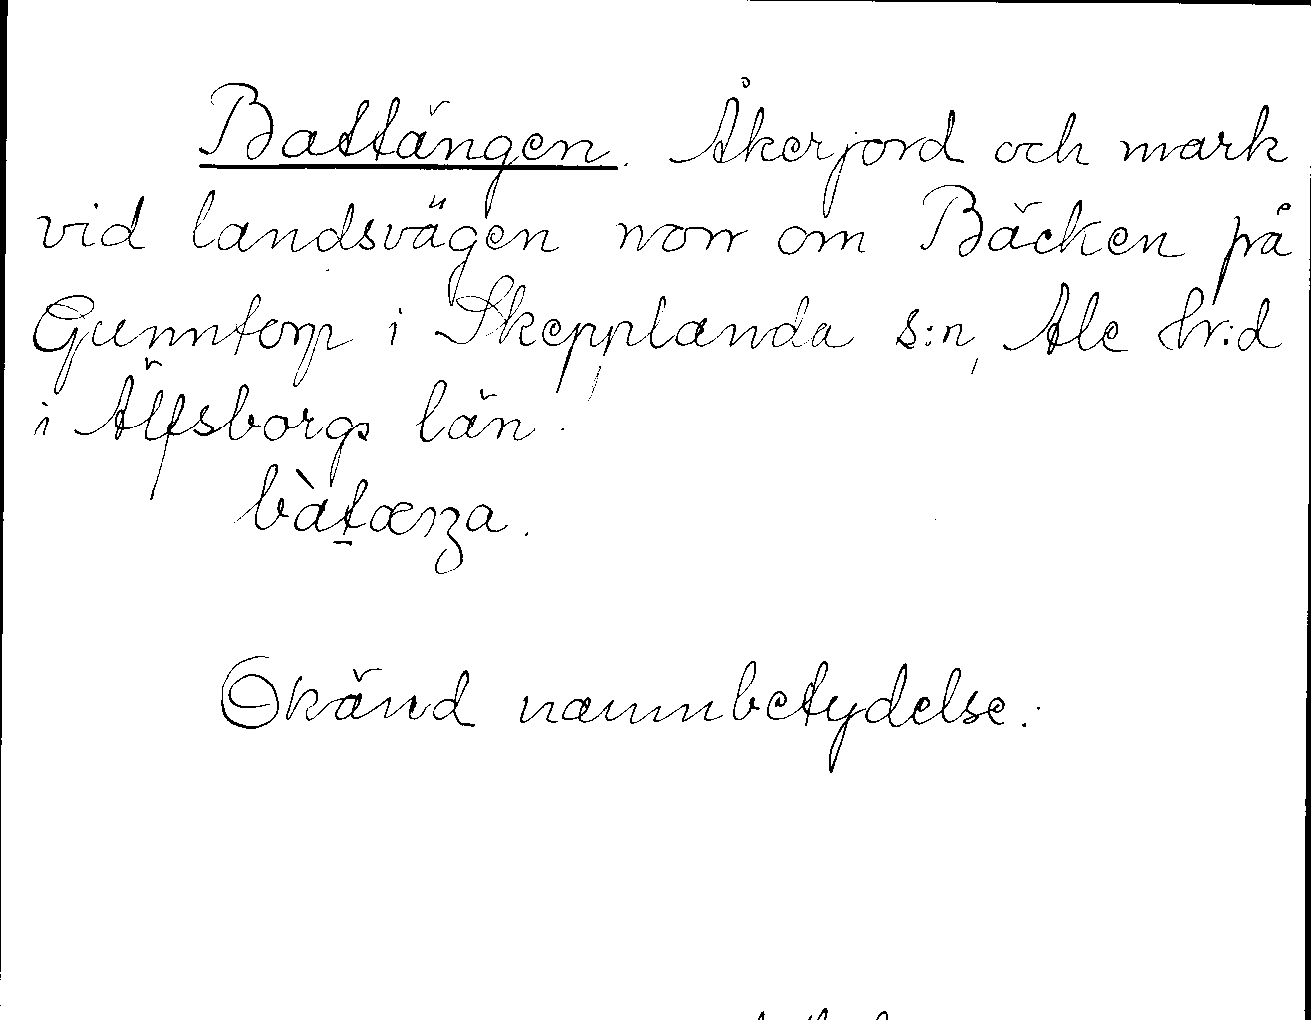 Battängen. Åkerjord och mark
vid landsvägen norr om Bäcken på
Gunntorp i Skepplanda s:n, Ale hr:d
i Älfsborgs län.
bàtæŋa.
Okänd namnbetydelse.